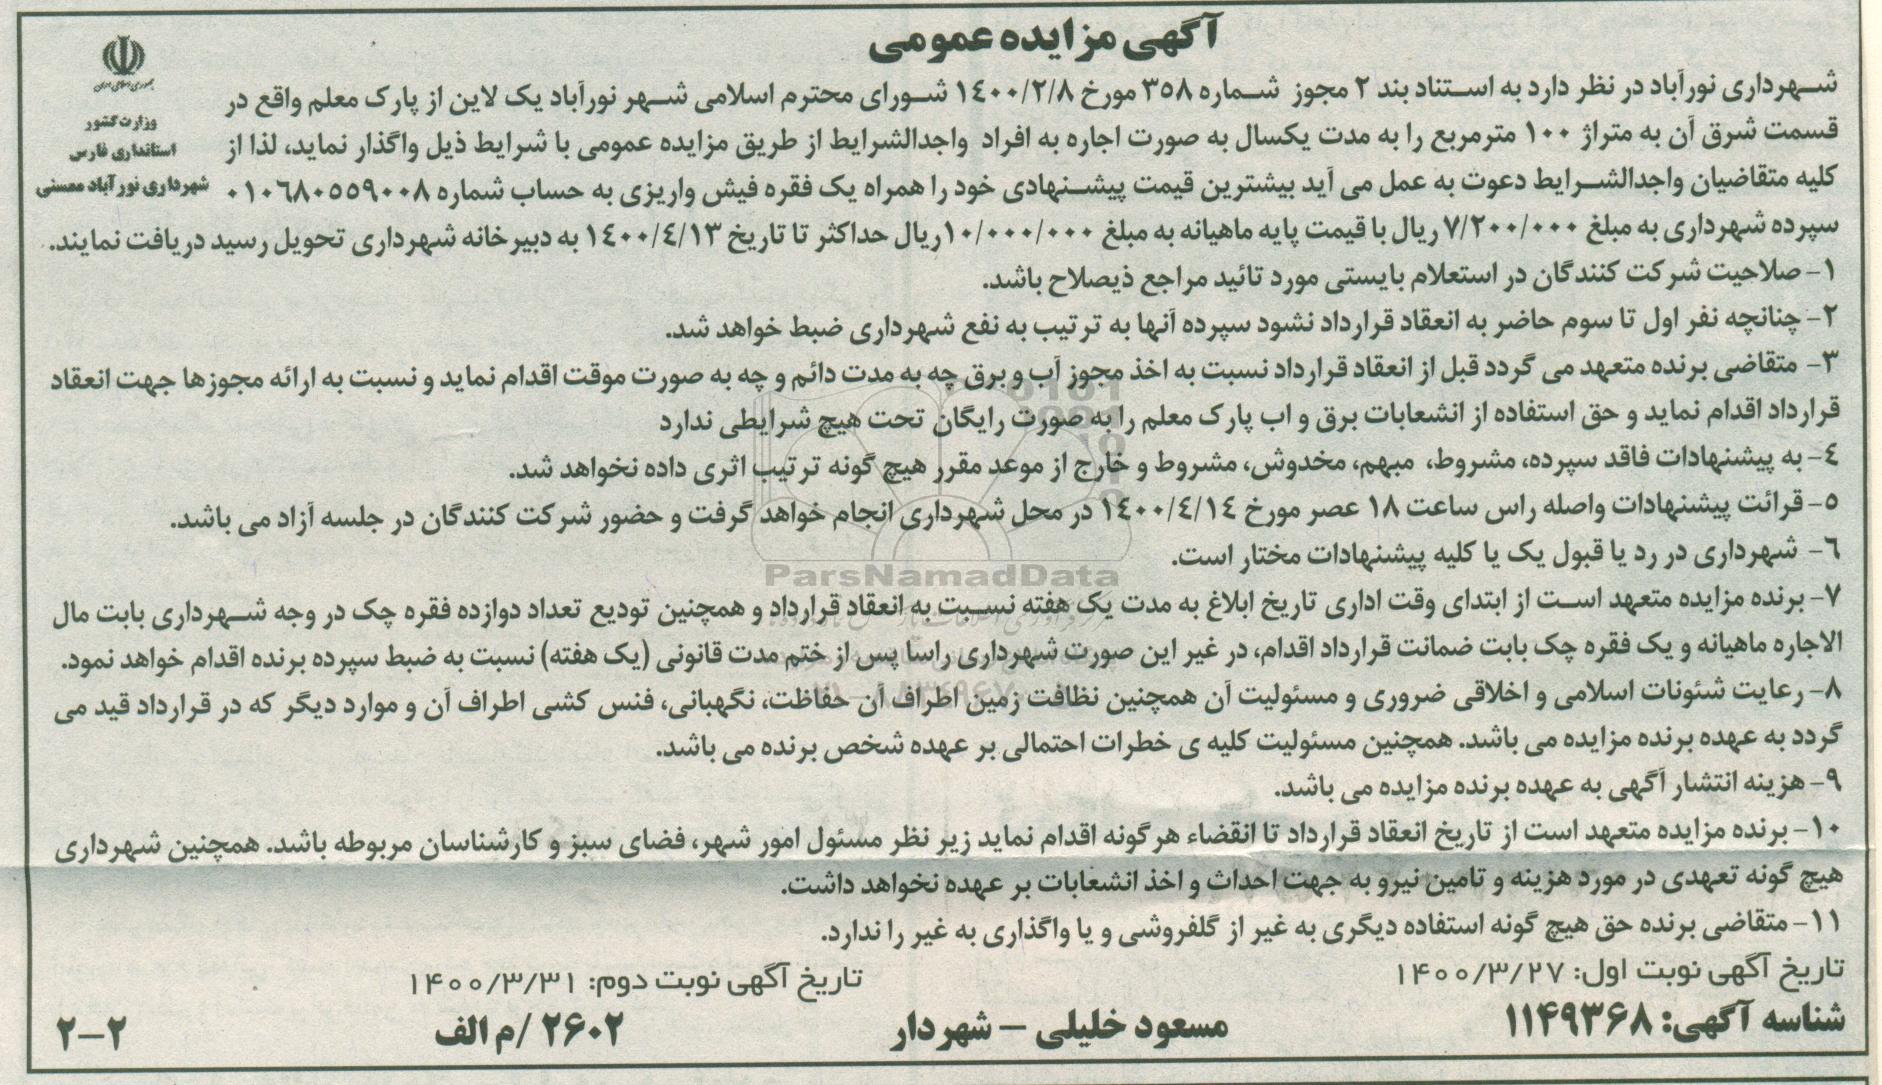 آگهی مزایده عمومی
جمهوری اسلامی ایران
وزارت کشور
استانداری فارس
شهرداری نورآباد ممسنی
شهرداری نورآباد در نظر دارد به استناد بند ۲ مجوز شماره ۳۵۸ مورخ ۱۴۰۰/۲/۸ شورای محترم اسلامی شهر نورآباد یک لاین از پارک معلم واقع در
قسمت شرق آن به متراژ ۱۰۰ مترمربع را به مدت یکسال به صورت اجاره به افراد واجدالشرایط از طریق مزایده عمومی با شرایط ذیل واگذار نماید، لذا از
کلیه متقاضیان واجدالشرایط دعوت به عمل می آید بیشترین قیمت پیشنهادی خود را همراه یک فقره فیش واریزی به حساب شماره ۰۱۰۶۸۰۵۵۹۰۰۸
سپرده شهرداری به مبلغ ۷/۲۰۰/۰۰۰ ریال با قیمت پایه ماهیانه به مبلغ ۱۰/۰۰۰/۰۰۰ریال حداکثر تا تاریخ ۱۴۰۰/۴/۱۳ به دبیرخانه شهرداری تحویل رسید دریافت نمایند.
۱- صلاحیت شرکت کنندگان در استعلام بایستی مورد تائید مراجع ذیصلاح باشد.
۲- چنانچه نفر اول تا سوم حاضر به انعقاد قرارداد نشود سپرده آنها به ترتیب به نفع شهرداری ضبط خواهد شد.
۳- متقاضی برنده متعهد می گردد قبل از انعقاد قرارداد نسبت به اخذ مجوز آب و برق چه به مدت دائم و چه به صورت موقت اقدام نماید و نسبت به ارائه مجوزها جهت انعقاد
قرارداد اقدام نماید و حق استفاده از انشعابات برق و اب پارک معلم را به صورت رایگان تحت هیچ شرایطی ندارد
۴- به پیشنهادات فاقد سپرده، مشروط، مبهم، مخدوش، مشروط و خارج از موعد مقرر هیچ گونه ترتیب اثری داده نخواهد شد.
۵- قرائت پیشنهادات واصله راس ساعت ۱۸ عصر مورخ ۱۴۰۰/۴/۱۴ در محل شهرداری انجام خواهد گرفت و حضور شرکت کنندگان در جلسه آزاد می باشد.
۶- شهرداری در رد یا قبول یک یا کلیه پیشنهادات مختار است.
ParsNamadData
۷- برنده مزایده متعهد است از ابتدای وقت اداری تاریخ ابلاغ به مدت یک هفته نسبت به انعقاد قرارداد و همچنین تودیع تعداد دوازده فقره چک در وجه شهرداری بابت مال
الاجاره ماهیانه و یک فقره چک بابت ضمانت قرارداد اقدام، در غیر این صورت شهرداری راسا پس از ختم مدت قانونی (یک هفته) نسبت به ضبط سپرده برنده اقدام خواهد نمود.
۸- رعایت شئونات اسلامی و اخلاقی ضروری و مسئولیت آن همچنین نظافت زمین اطراف آن حفاظت، نگهبانی، فنس کشی اطراف آن و موارد دیگر که در قرارداد قید می
گردد به عهده برنده مزایده می باشد. همچنین مسئولیت کلیه ی خطرات احتمالی بر عهده شخص برنده می باشد.
۹- هزینه انتشار آگهی به عهده برنده مزایده می باشد.
۱۰- برنده مزایده متعهد است از تاریخ انعقاد قرارداد تا انقضاء هرگونه اقدام نماید زیر نظر مسئول امور شهر، فضای سبز و کارشناسان مربوطه باشد. همچنین شهرداری
هیچ گونه تعهدی در مورد هزینه و تامین نیرو به جهت احداث و اخذ انشعابات بر عهده نخواهد داشت.
۱۱- متقاضی برنده حق هیچ گونه استفاده دیگری به غیر از گلفروشی و یا واگذاری به غیر را ندارد.
تاریخ آگهی نوبت اول: ۱۴۰۰/۳/۲۷ تاریخ آگهی نوبت دوم: ۱۴۰۰/۳/۳۱
شناسه آگهی: ۱۱۴۹۳۶۸ مسعود خلیلی – شهردار ۲۶۰۲ /م الف ۲–۲